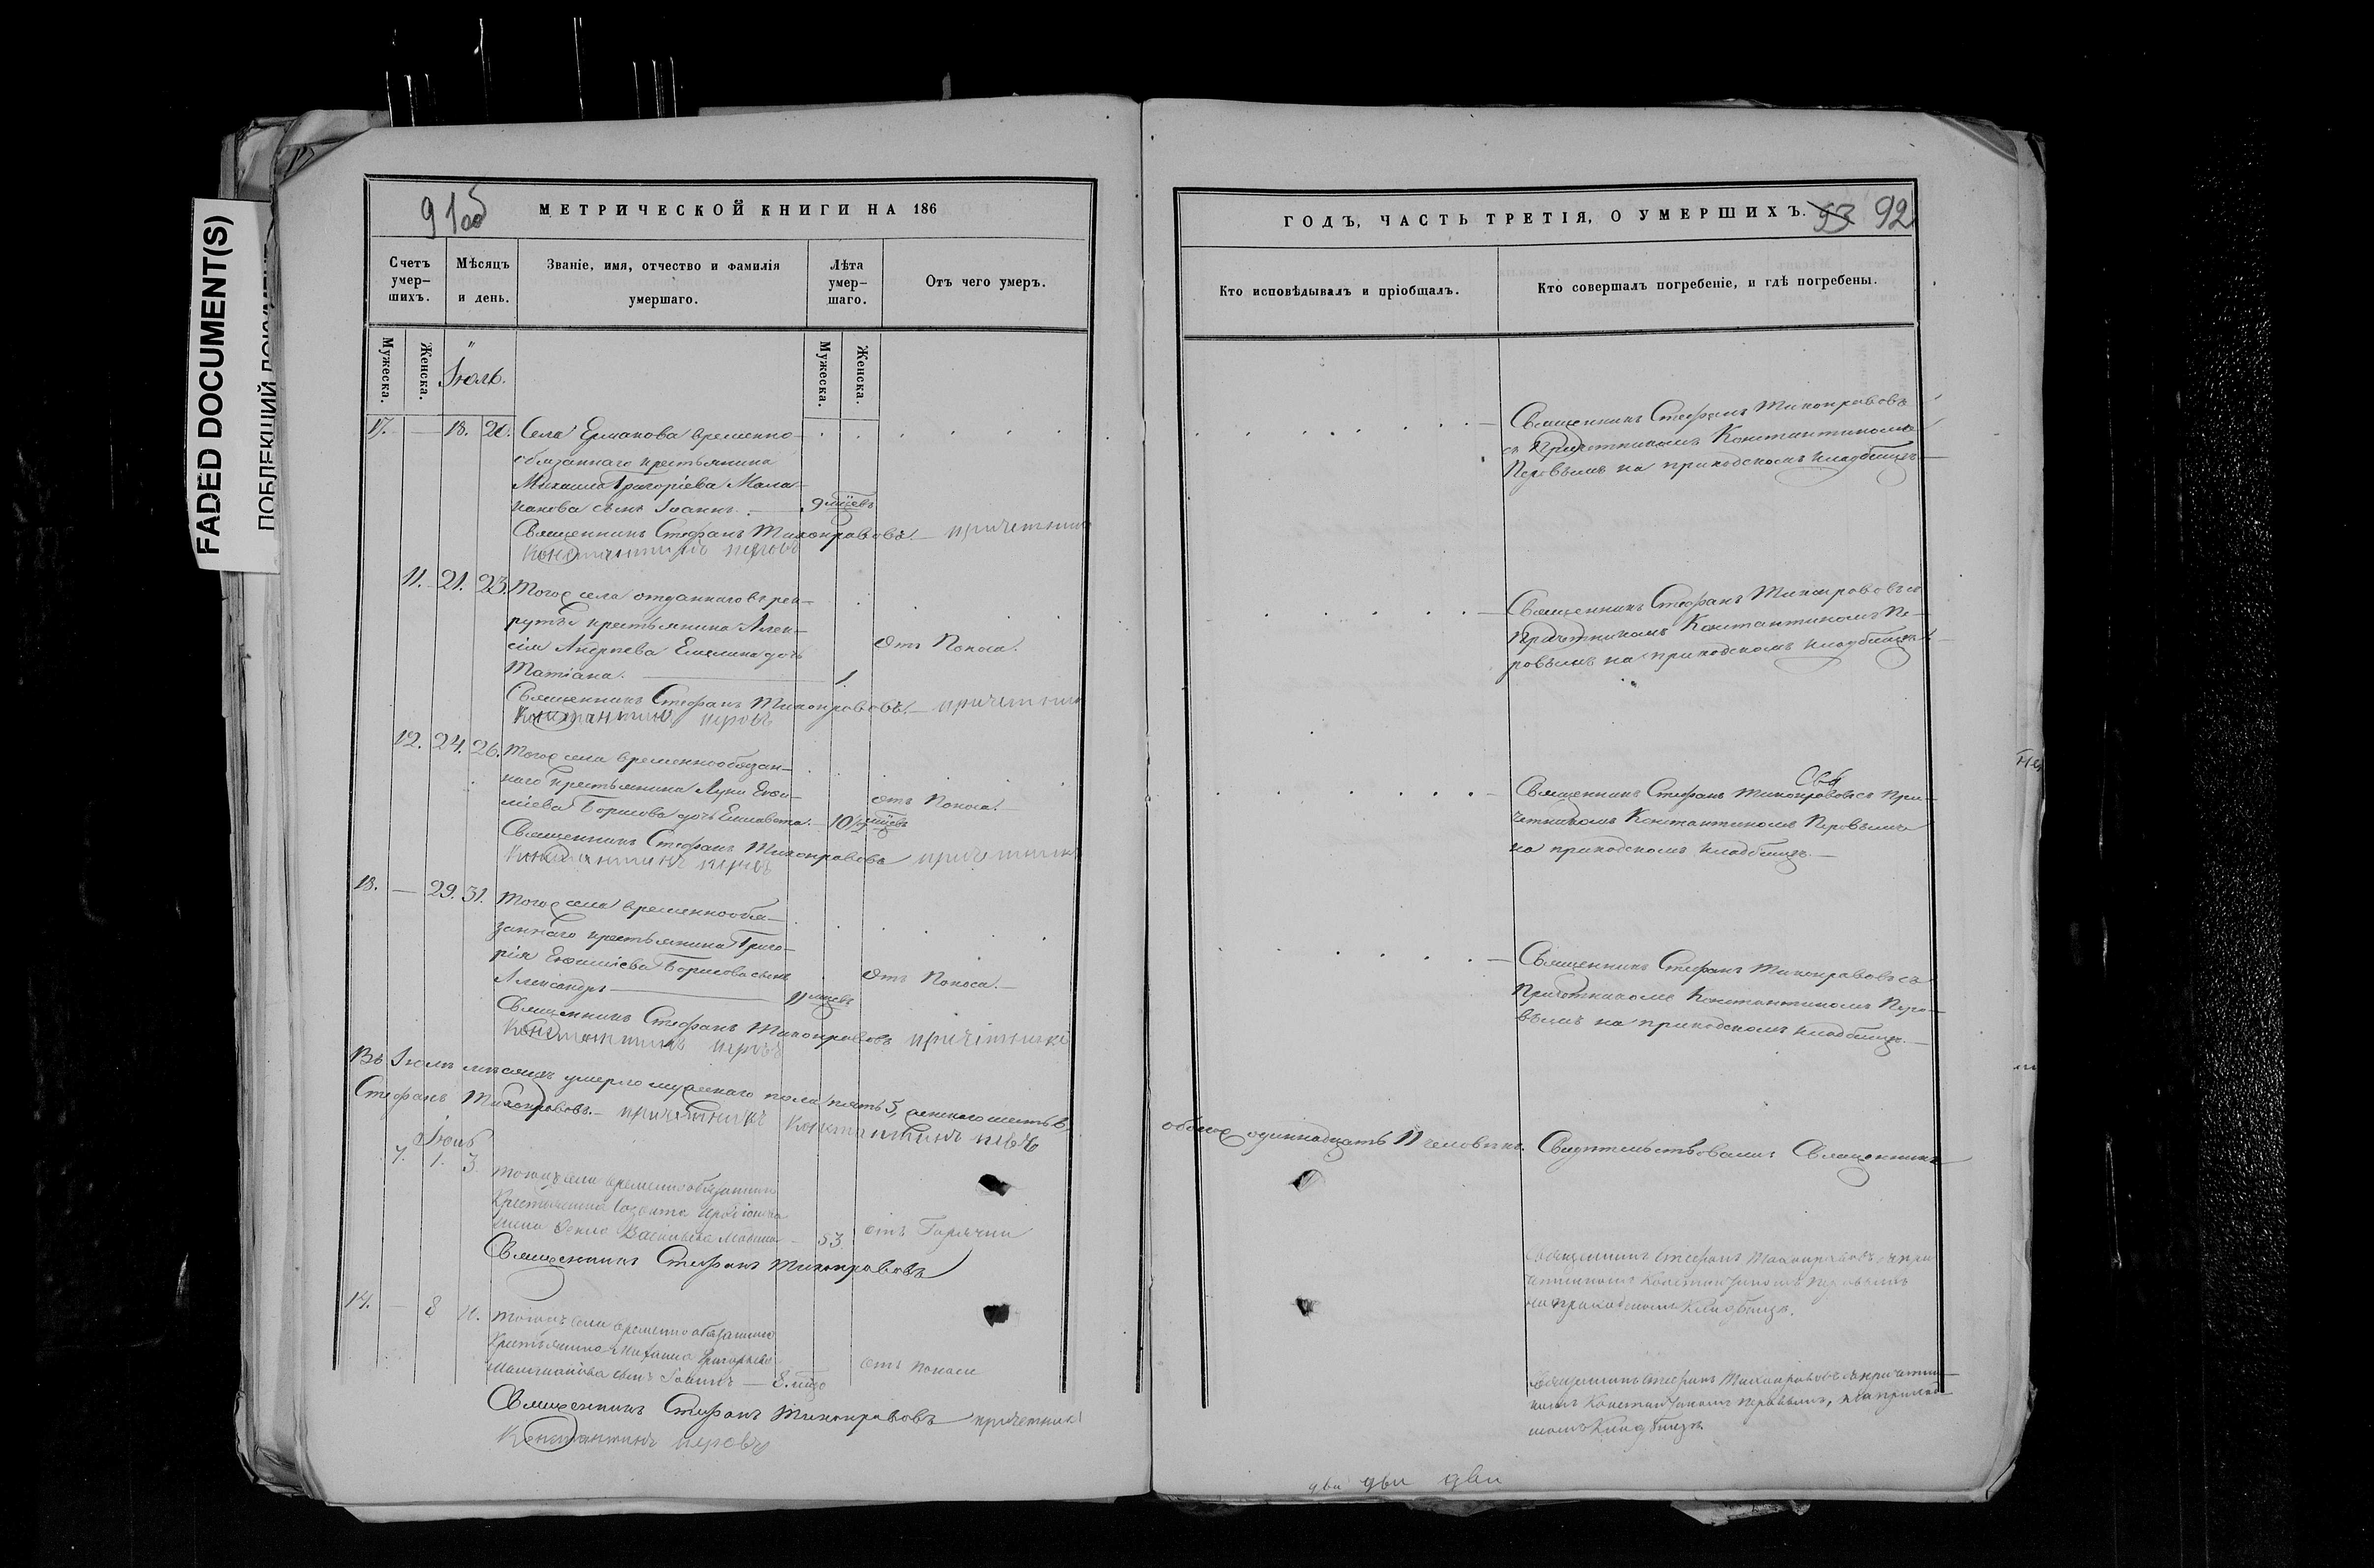 FADED DOCUMENT(S)
91 об
МЕТРИЧЕСКОЙ КНИГИ НА 186
Счетъ умер-шихъ.
Мѣсяцъ и день.
Званіе, имя, отчество и фамилія умершаго.
Лѣта умер-шаго.
Отъ чего умеръ.
Мужеска.
Женска.
Іюль.
Мужеска.
Женска.
17. — 18. 20. Села Ермакова временно-
обязаннаго крестьянина
Михаила Григоріева Мала-
хова сынъ Іоаннъ. — 9 мцевъ
Священникъ Стефанъ Тихонравовъ. — причетникъ
Константинъ перовъ
11. 21. 23. Тогоже села отданнаго въ рек-
руты крестьянина Алек-
сія Андреева Емелина дочь
Татіана. — 1. Отъ Поноса.
Священникъ Стефанъ Тихонравовъ. — причетникъ
Константинъ перовъ
12. 24. 26. Тогоже села временнообязан-
наго крестьянина Луки Евфи-
міева Борисова дочь Елисавета. — 10 1/2 мцевъ отъ Поноса. —
Священникъ Стефанъ Тихонравовъ причетникъ
Константинъ перовъ
18. — 29. 31. Тогоже села временнообя-
заннаго крестьянина Григо-
рія Евфиміева Борисова сынъ
Александръ — 11 мцевъ Отъ Поноса. —
Священникъ Стефанъ Тихонравовъ причетникъ
Константинъ перовъ
Въ Іюлѣ мѣсяцѣ умерло мужескаго пола пять 5, женскаго шесть 6,
Стефанъ Тихонравовъ. — причетникъ Константинъ перовъ
7. 1. 3. Тогожъ села временнообязаннаго
53. отъ Горячки
Священникъ Стефанъ Тихонравовъ
14. — 8 Тогожъ села временнообязаннаго
Крестьянина Михаила Григорьева
сынъ Іоаннъ — 8. отъ поноса
Священникъ Стефанъ Тихонравовъ причетникъ
Константинъ перовъ
ГОДЪ, ЧАСТЬ ТРЕТІЯ, О УМЕРШИХЪ.
93 92
Кто исповѣдывалъ и пріобщалъ.
Кто совершалъ погребеніе, и гдѣ погребены.
Священникъ Стефанъ Тихонравовъ
съ Причетникомъ Константиномъ
Перовымъ на приходскомъ кладбищѣ —
Священникъ Стефанъ Тихонравовъ съ
Причетникомъ Константиномъ Пе-
ровымъ на приходскомъ кладбищѣ —
Священникъ Стефанъ Тихонравовъ съ При-
четникомъ Константиномъ Перовымъ
на приходскомъ кладбищѣ. —
Священникъ Стефанъ Тихонравовъ съ
Причетникомъ Константиномъ Перо-
вымъ на приходскомъ кладбищѣ. —
обоего одиннадцать 11 человѣкъ. Свидѣтельствовали: Священникъ
Священникъ Стефанъ Тихонравовъ съ при
четникомъ Константиномъ Перовымъ
на приходскомъ Кладбищѣ.
Священникъ Стефанъ Тихонравовъ съ причетни-
комъ Константиномъ Перовымъ, на приход
скомъ Кладбищѣ
дви дви дви